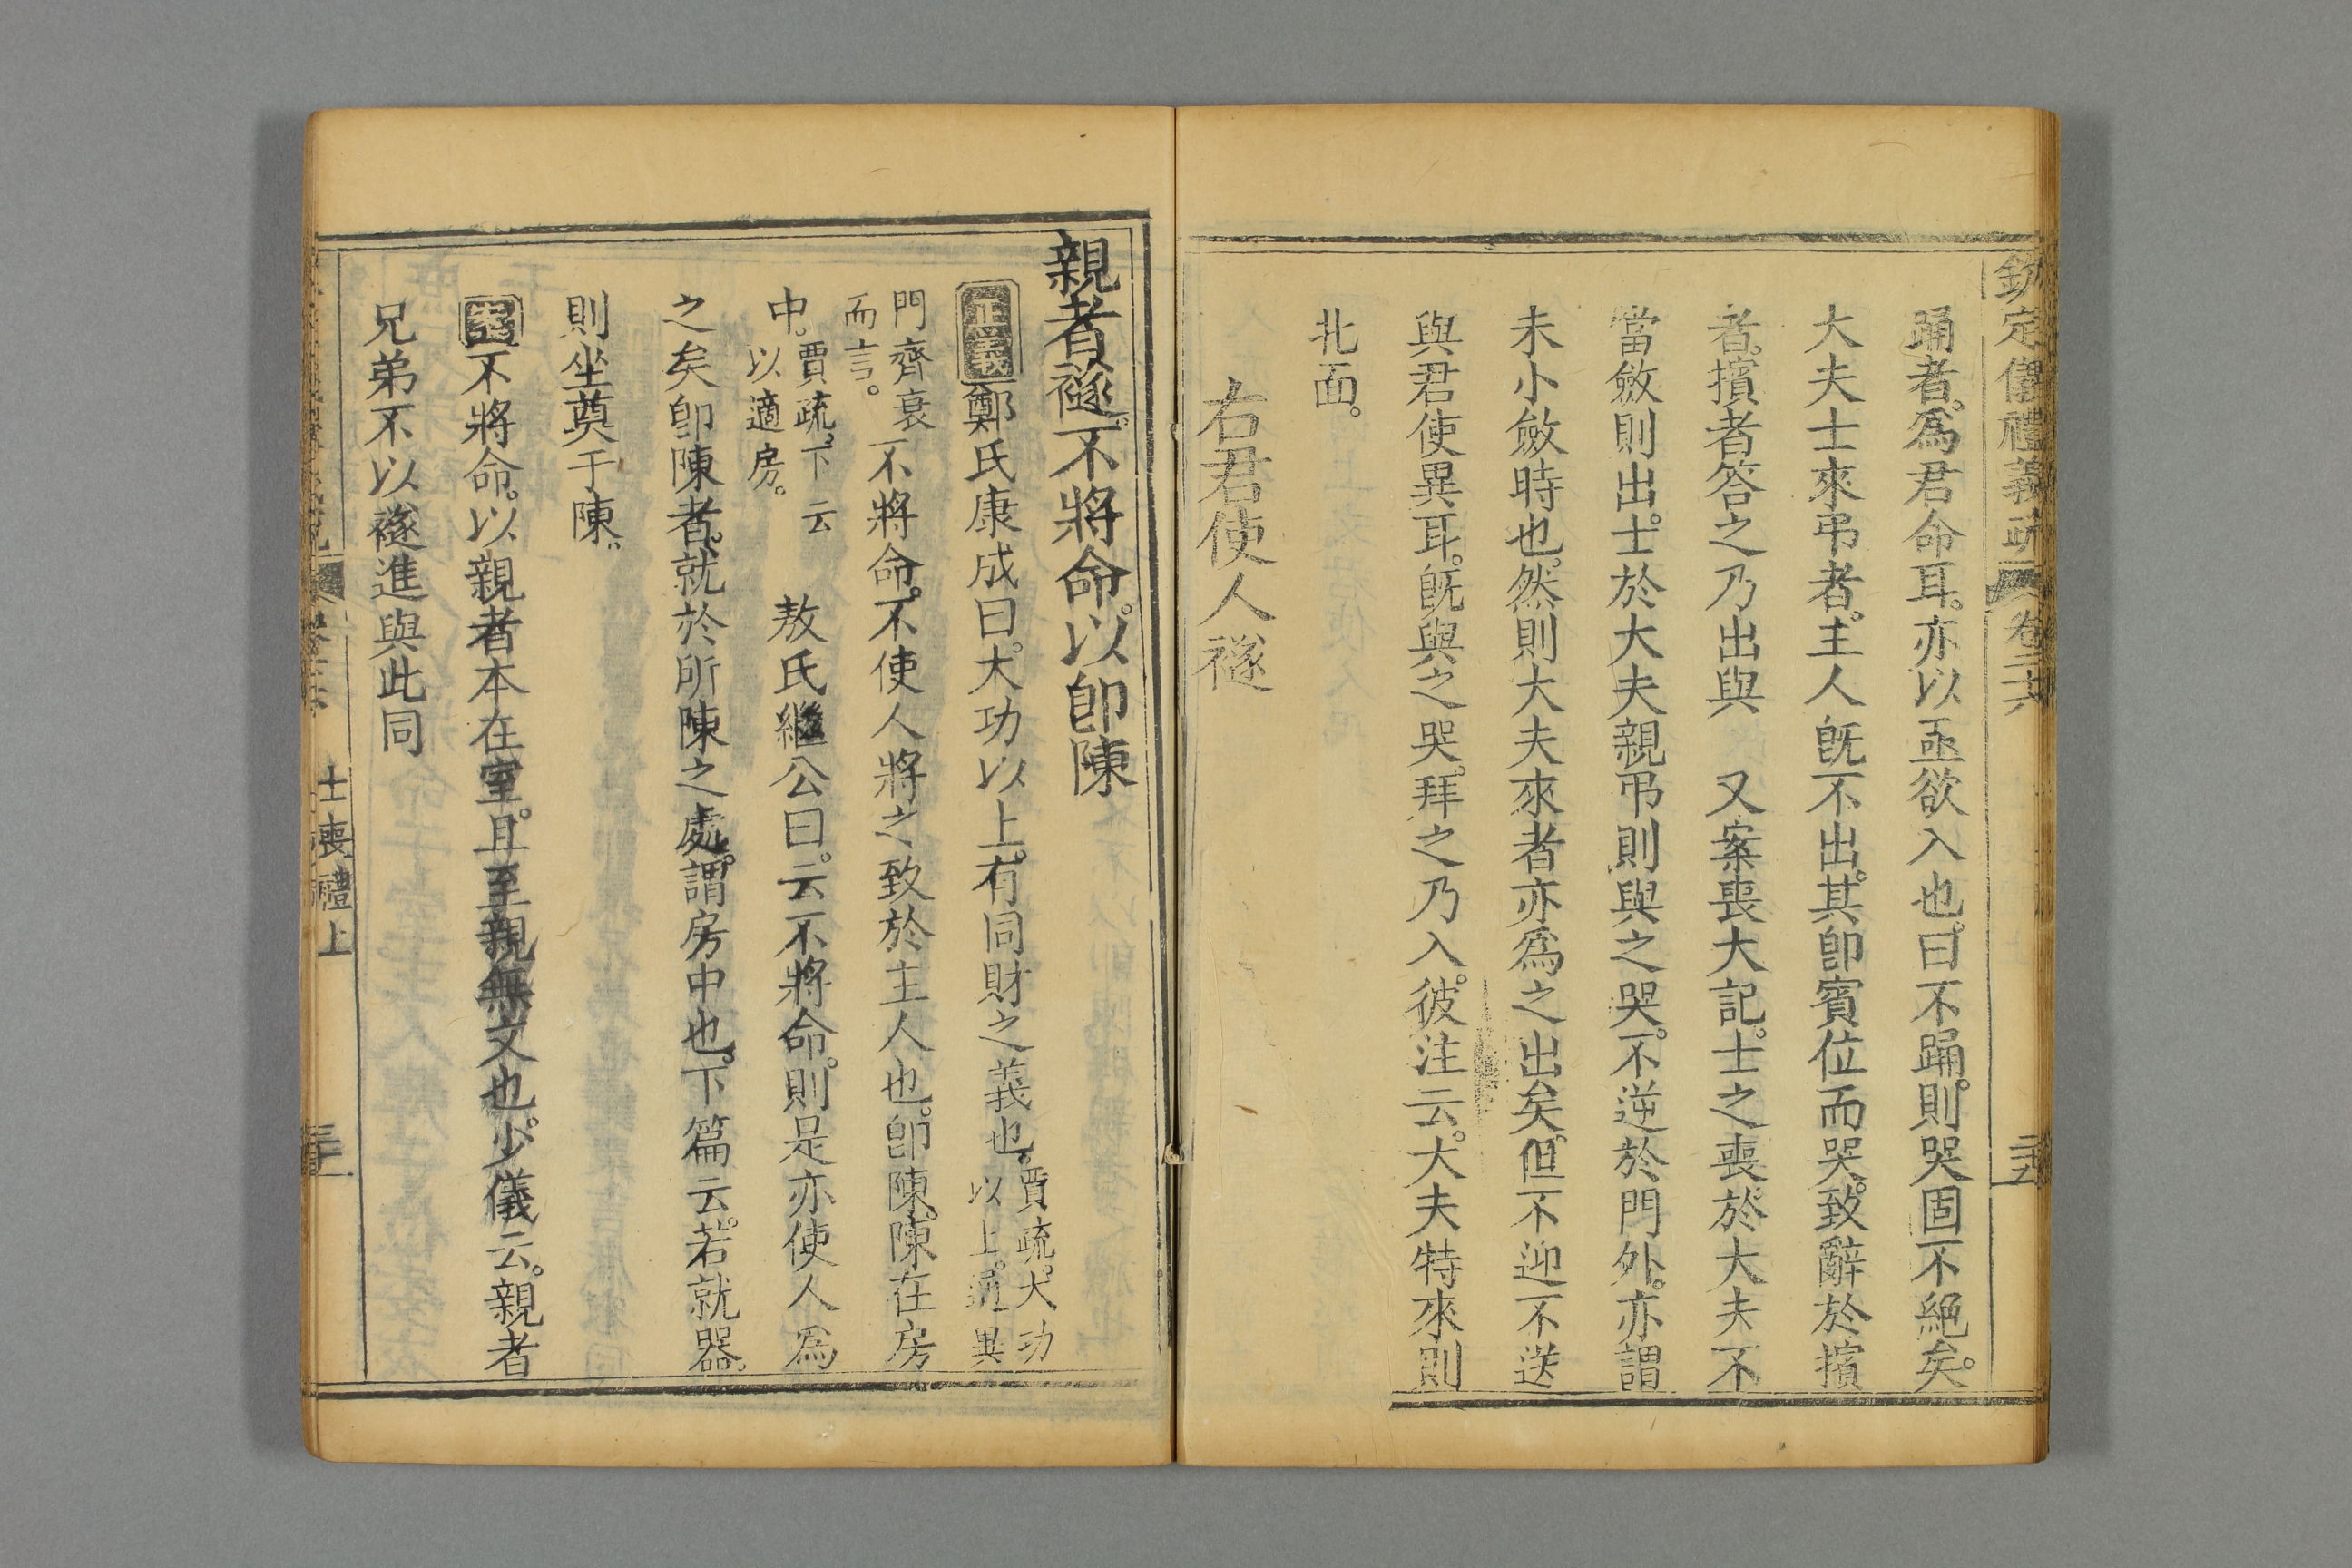 欽定儀禮義疏 卷二十六 二十五
踊者。爲君命耳。亦以亟欲入也。曰不踊。則哭固不絕矣。
大夫士來弔者。主人旣不出。其卽賓位而哭。致辭於擯
者。擯者答之乃出與 又案喪大記。士之喪於大夫不
當斂則出。士於大夫親弔則與之哭。不逆於門外。亦謂
未小斂時也。然則大夫來者亦爲之出矣。但不迎不送
與君使異耳。旣與之哭。拜之乃入。彼注云。大夫特來則
北面。
右君使人襚
親者襚。不將命。以卽陳
正義鄭氏康成曰。大功以上。有同財之義也。賈疏。大功以上。謂異
門齊衰而言。不將命。不使人將之致於主人也。卽陳。陳在房
中。賈疏。下云以適房。 敖氏繼公曰。云不將命。則是亦使人爲
之矣卽陳者。就於所陳之處。謂房中也。下篇云。若就器。
則坐奠于陳。
案不將命。以親者本在室。且至親無文也。少儀云。親者
兄弟不以襚進與此同
士喪禮上